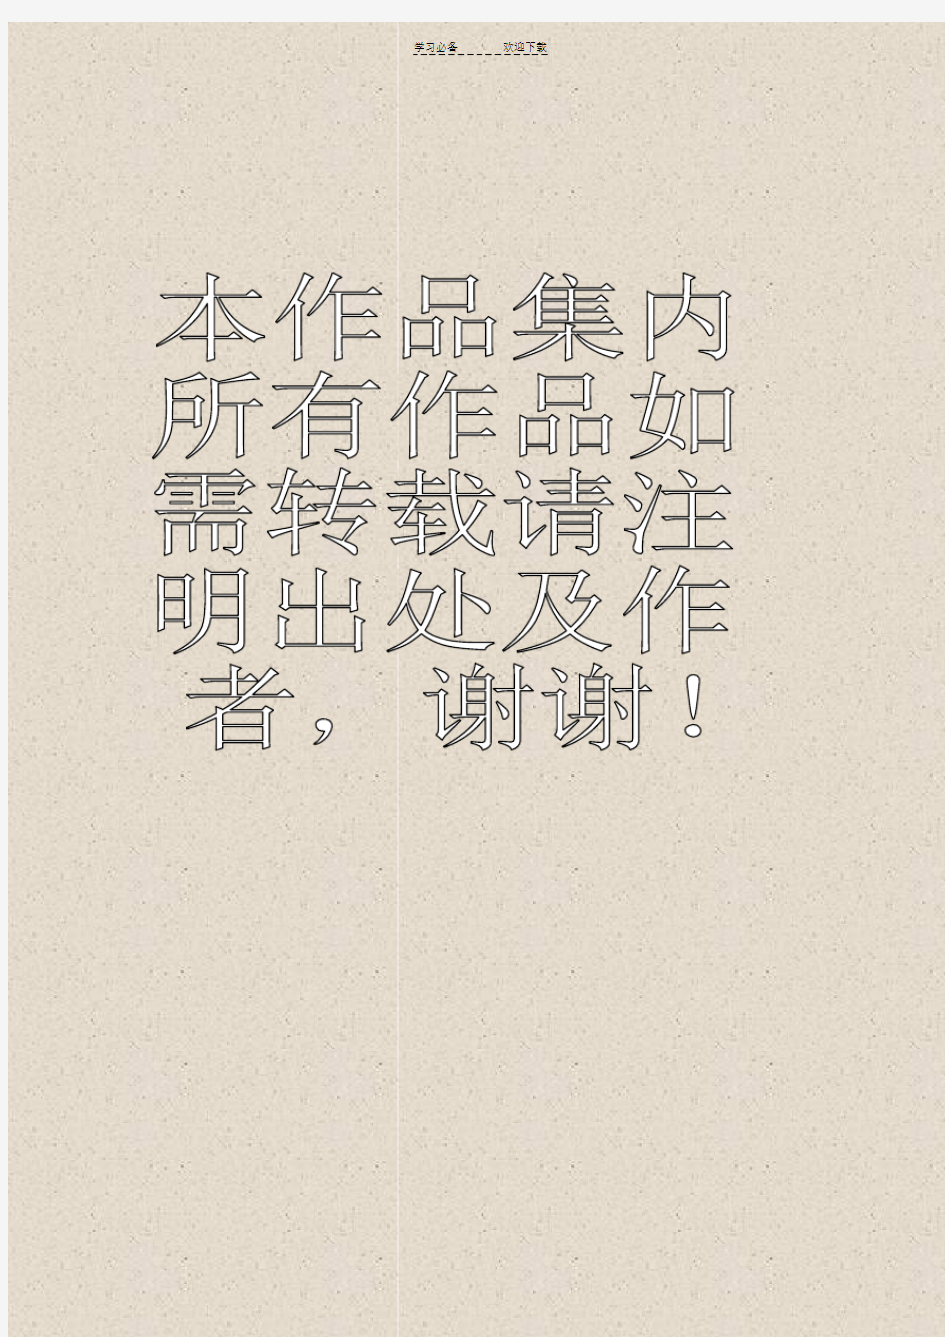 学习必备 欢迎下载
本作品集内
所有作品如
需转载请注
明出处及作
者， 谢谢！